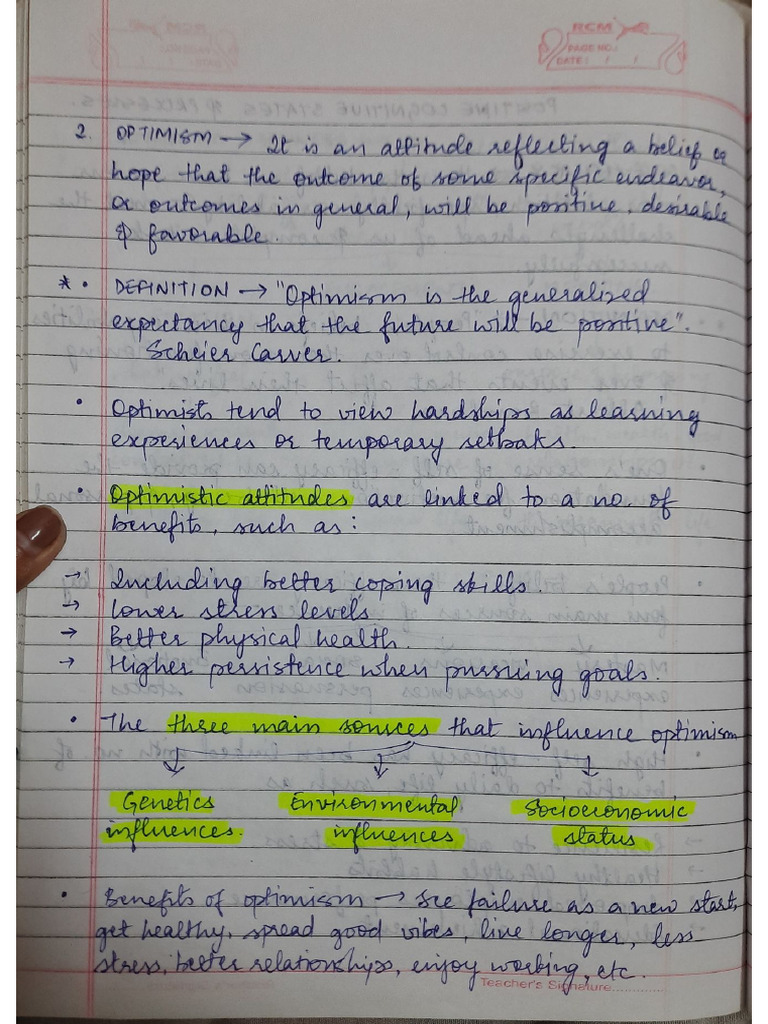 RCM
PAGE NO.:
DATE: / /
2. OPTIMISM → It is an attitude reflecting a belief or
hope that the outcome of some specific endeavor,
or outcomes in general, will be positive, desirable
& favorable.
* • DEFINITION → "Optimism is the generalized
expectancy that the future will be positive".
Scheier Carver.
• Optimists tend to view hardships as learning
experiences or temporary setbaks.
• Optimistic attitudes are linked to a no. of
benefits, such as:
→ Including better coping skills.
→ Lower stress levels
→ Better physical health.
→ Higher persistence when pursuing goals.
• The three main sources that influence optimism
↓ ↓ ↓
Genetics Environmental Socioeconomic
influences. influences status
• Benefits of optimism → See failure as a new start,
get healthy, spread good vibes, live longer, less
stress, better relationships, enjoy working, etc.
Teacher's Signature..............